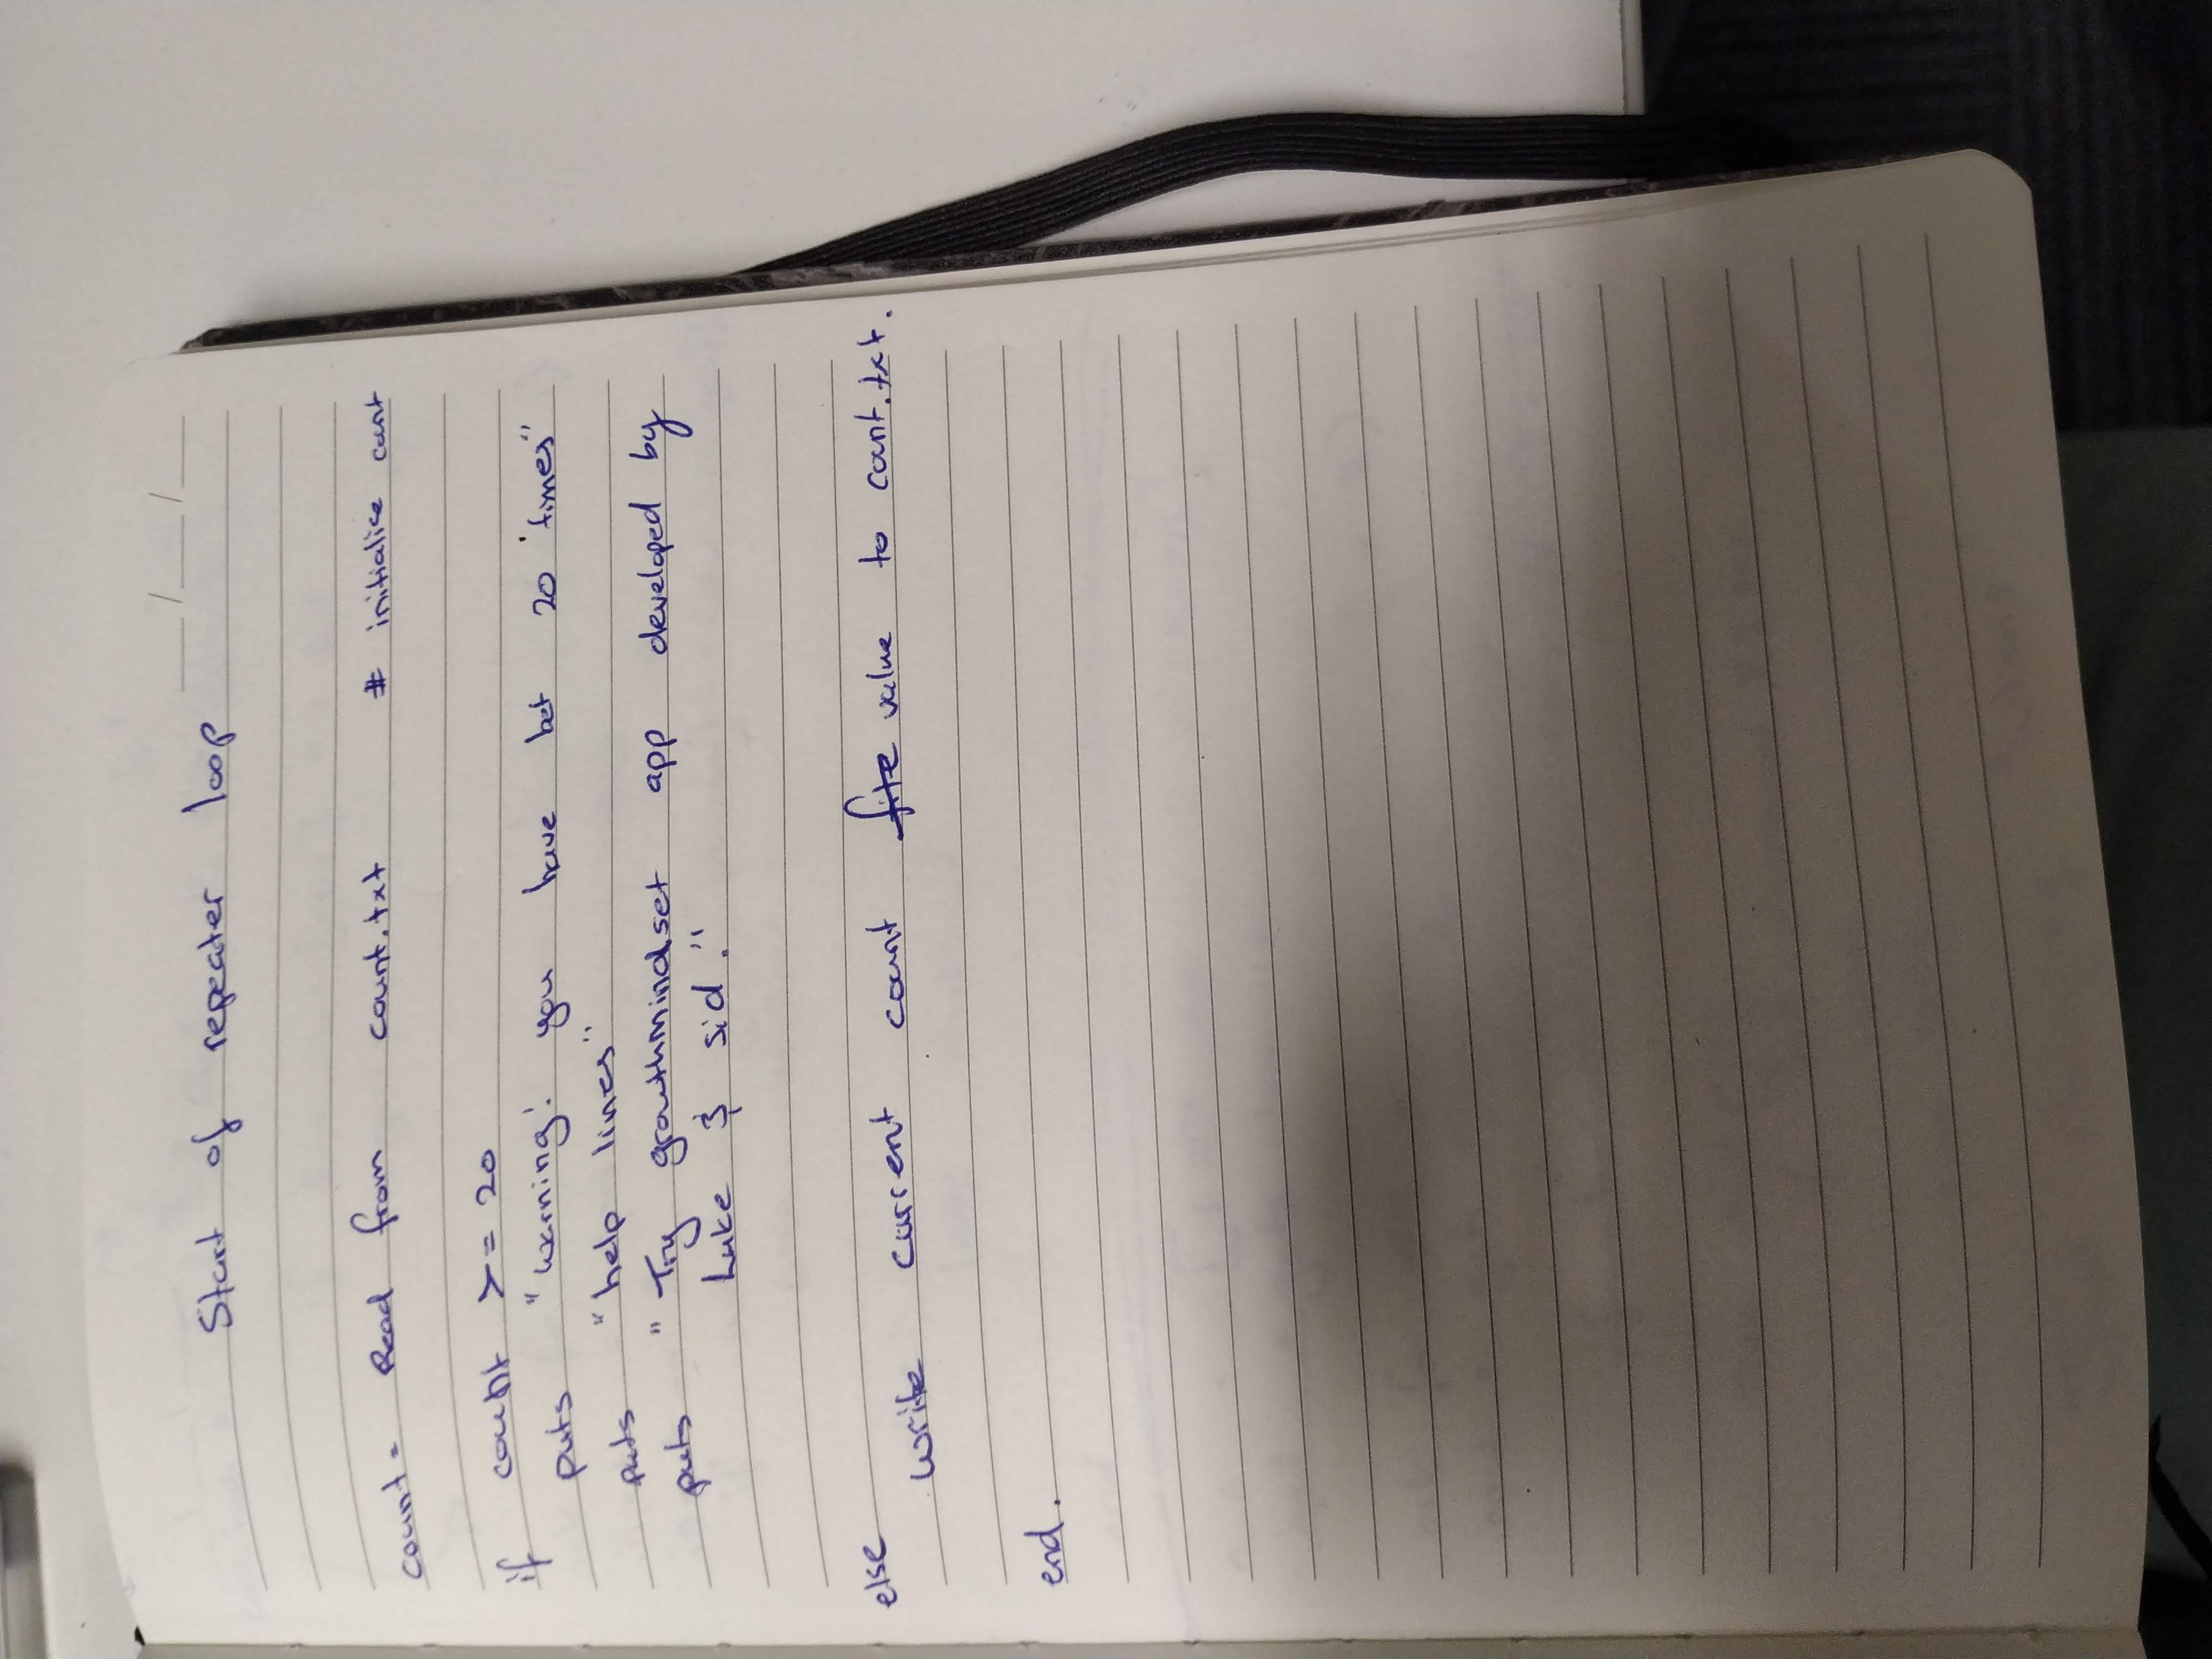 Start of repeater loop
count = Read from count.txt # initialise count
if count >= 20
puts "warning! you have bet 20 times"
puts "help lines"
puts "Try growthmindset app developed by
Luke & sid."
else
write current count file value to count.txt.
end.